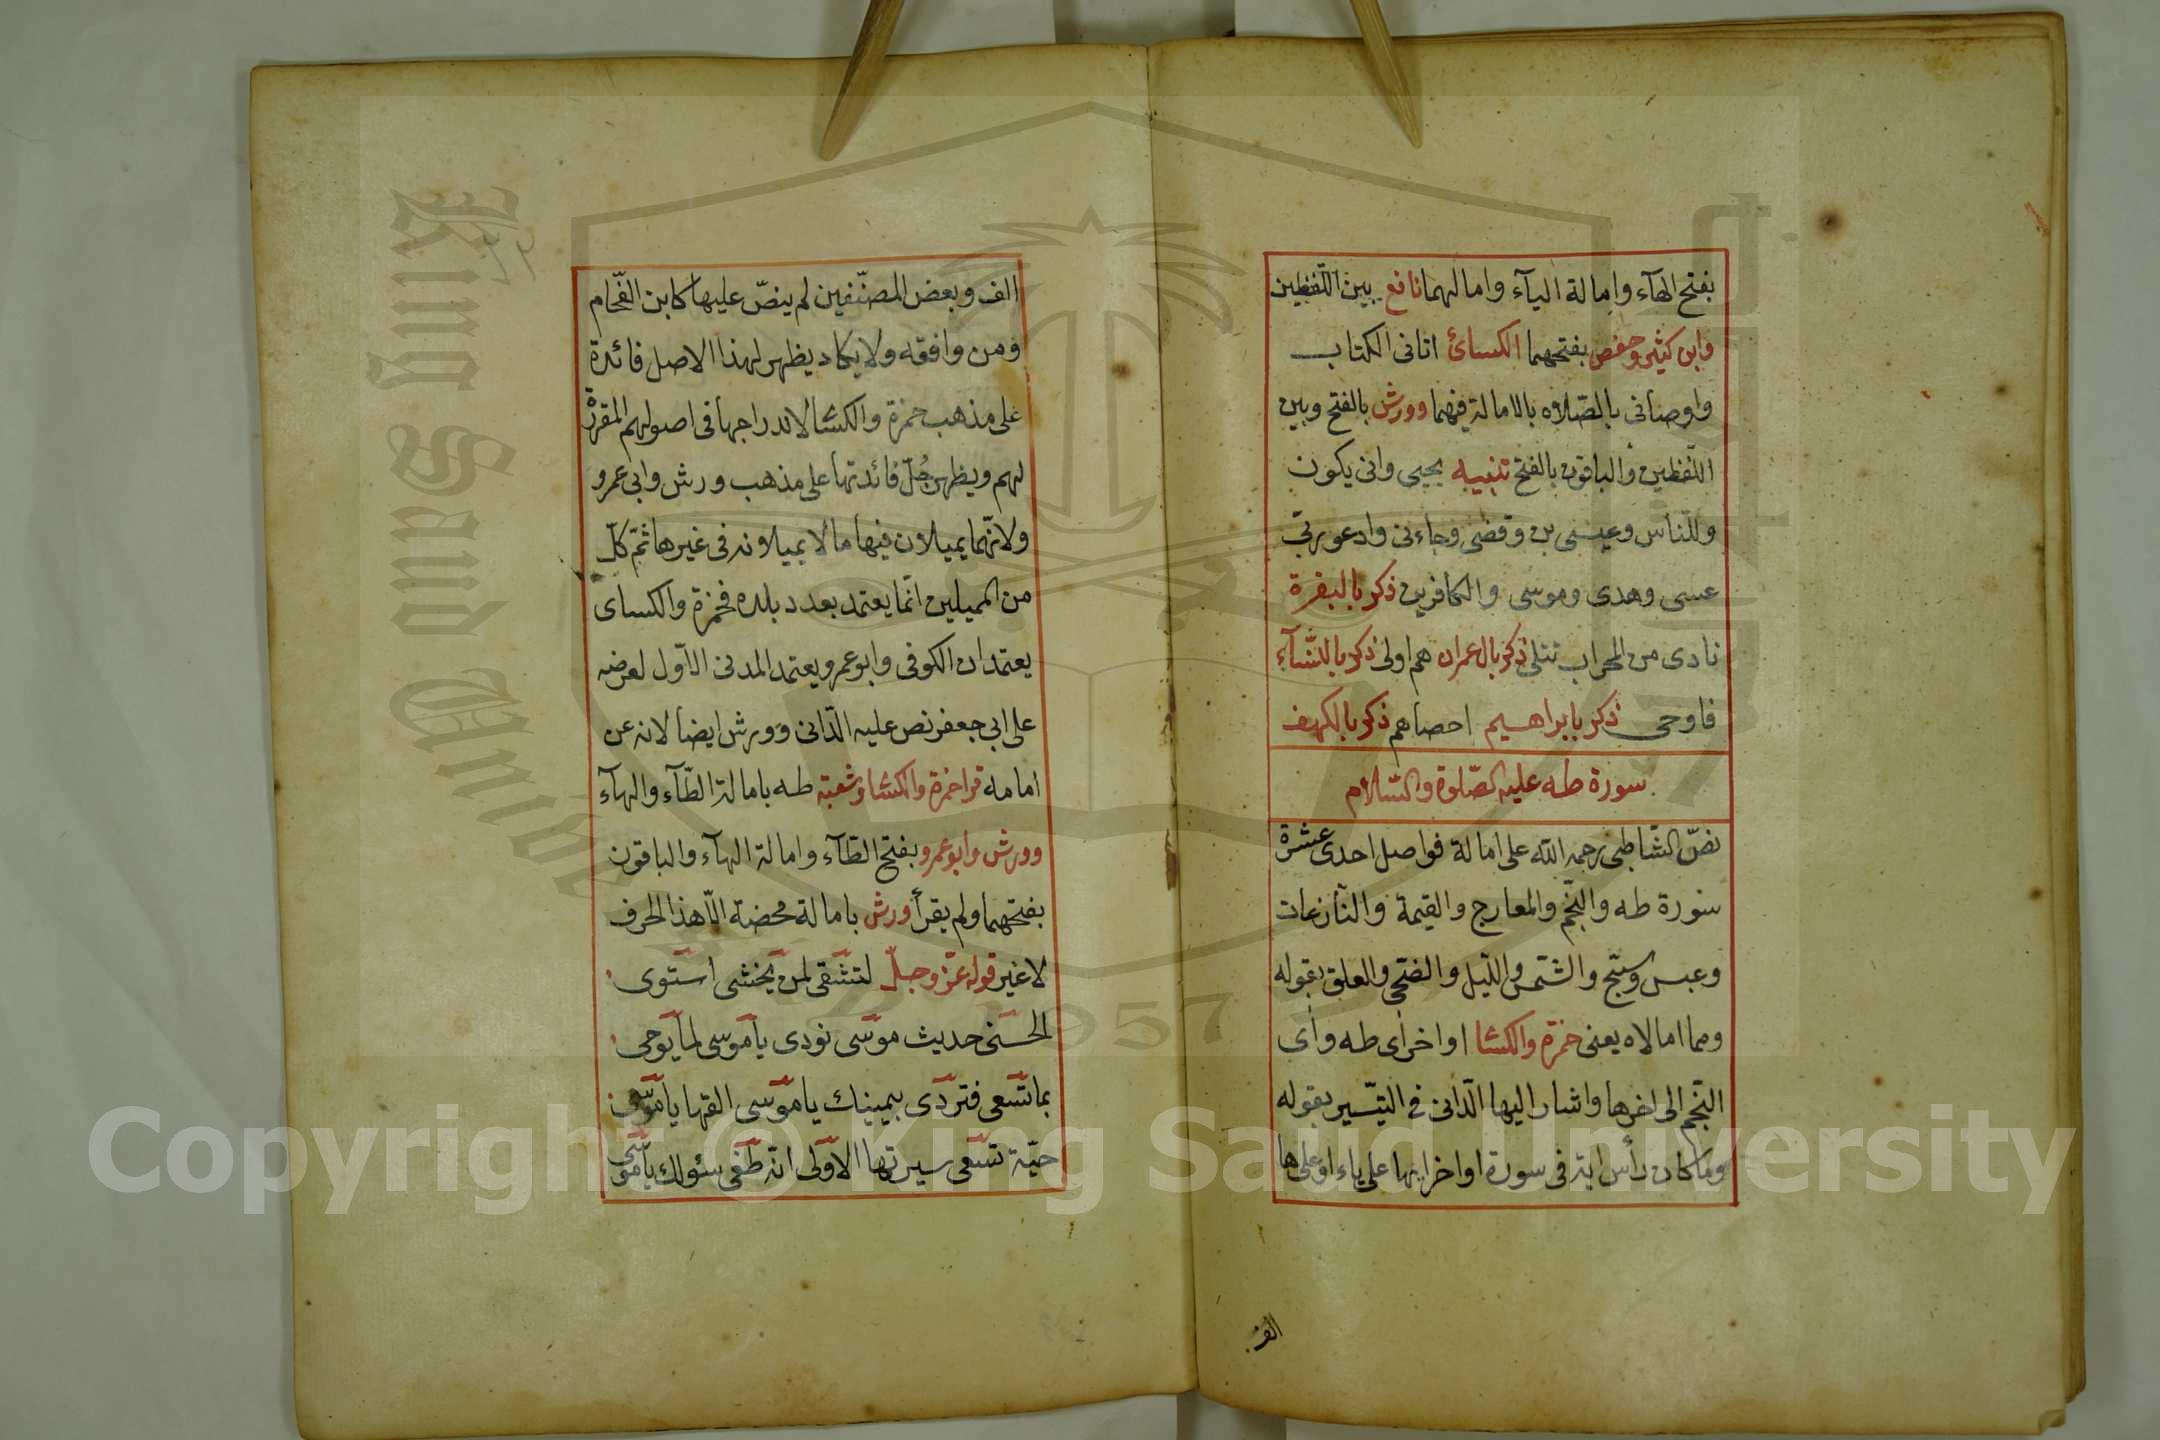 بفتح الهآء وامالة اليآء وامالهما نافع بين اللّفظين
وابن كثير وحفص بفتحهما الكسائ اتانى الكتاب
واوصانى بالصّلاه بالامالة فيهما وورش بالفتح وبين
اللّفظين والباقون بالفتح تنبيه يحيى وانى يكون
وللنّاس وعيسى بن وقضى وجاءنى وادعو ربّى
عسى وهدى وموسى والكافرين ذكر بالبقرة
نادى من المحراب تتلى ذكر بال عمران هم اولى ذكر بالنّسآء
فاوحى ذكر بابراهيم احصاهم ذكر بالكهف
سورة طه عليه الصّلوة والسّلام
نصّ الشّاطبى رحمه الله على امالة فواصل احدى عشرة
سورة طه والنّجم والمعارج والقيمة والنّازعات
وعبس وسبّح والشّمس واللّيل والضّحى والعلق بقوله
ومما امالاه يعنى حمزة والكسا اواخر اى طه واى
النّجم الى اخرها واشار اليها الدّانى فى التيّسير بقوله
وما كان رأس اية فى سورة اواخر ايها على ياء او على ها
الف وبعض المصنّفين لم ينصّ عليها كابن الفحّام
ومن وافقه ولا يكاد يظهر لهذا الاصل فائدة
على مذهب حمزة والكسا لاندراجها فى اصولهم المقررة
لهم ويظهر جُلّ فائدتها على مذهب ورش وابى عمرو
ولانّهما يميلان فيها مالا يميلونه فى غيرها ثمّ كلّ
من المميلين انّما يعتمد بعدد بلده فحمزة والكساى
يعتمدان الكوفى وابو عمرو يعتمد المدنى الاوّل لعرضه
على ابى جعفر نص عليه الدّانى وورش ايضا لانه عن
امامه قرا حمزة والكسا وشعبة طه بامالة الطّآء والهآء
وورش وابو عمرو بفتح الطّآء وامالة الهآء والباقون
بفتحهما ولم يقرأ ورش بامالة محضة الّا هذا الحرف
لا غير قوله عزّ وجلّ لتشقى لمن يخشى استوى
الحسنى حديث موسى نودى ياموسى لما يوحى
بما تسعى فتردى بيمينك ياموسى القها ياموسى
حيّة تسعى سيرتها الاولى انّه طغى سئولك ياموسى
King Saud University
1957
Copyright © King Saud University